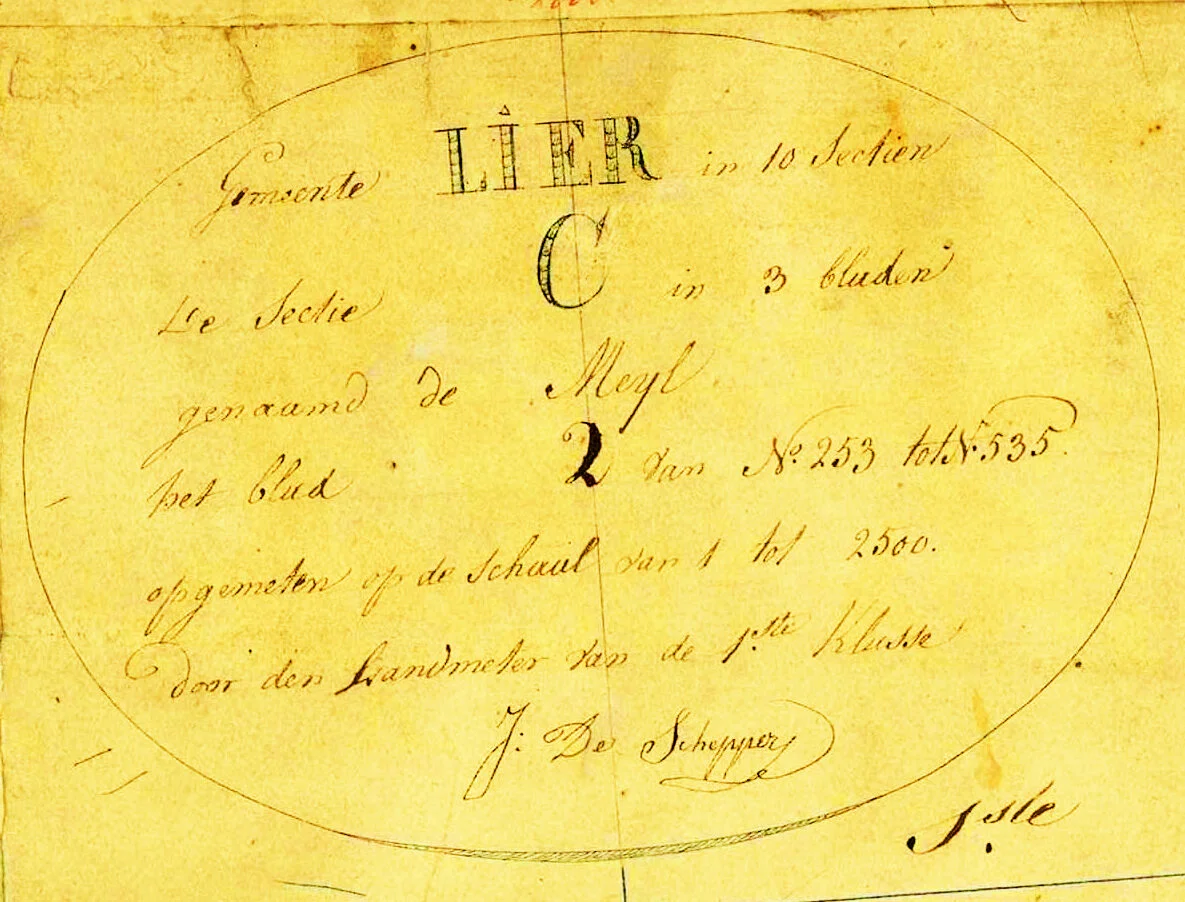 Gemeente LIER in 10 Sectien
De Sectie C in 3 bladen
genaamd de Meyl
het blad 2 van N.º 253 tot N. 535.
opgemeten op de schaal van 1 tot 2500.
Door den Landmeter van de 1.ste Klasse
J: De Schepper
1.ste